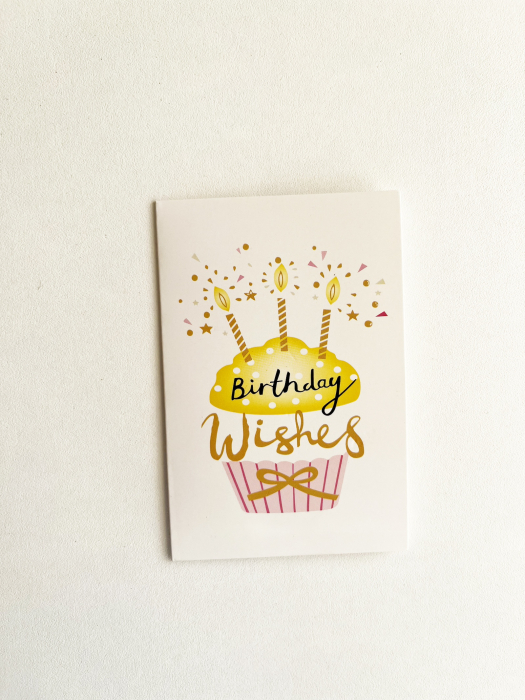 Birthday
Wishes